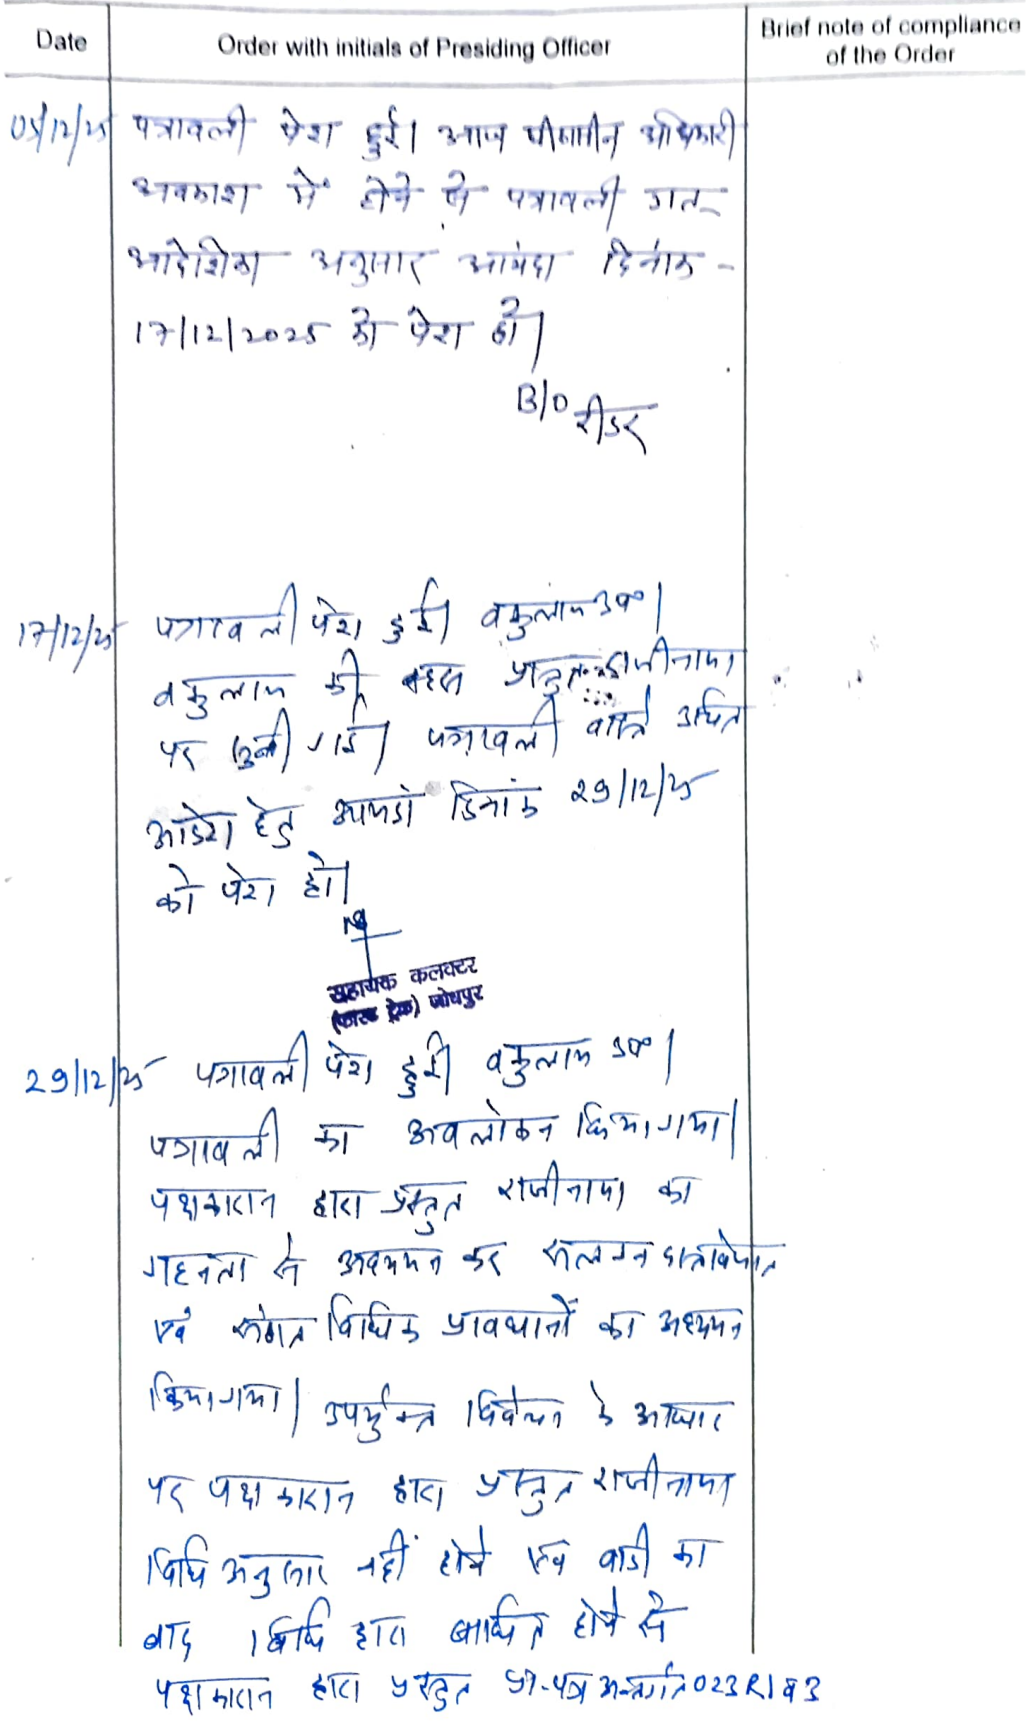 Date
Order with initials of Presiding Officer
Brief note of compliance
of the Order
05/12/25 पत्रावली पेश हुई। आज पीठासीन अधिकारी
अवकाश में होने से पत्रावली गत
आदेशिका अनुसार आयंदा दिनांक -
17/12/2025 को पेश हो।
B/O रीडर
17/12/25 पत्रावली पेश हुई। वकुलाय उप०।
वकुलाय की बहस प्रस्तुत राजीनामा
पर सुनी गई। पत्रावली वास्ते उचित
आदेश हेतु आयंदा दिनांक 29/12/25
को पेश हो।
सहायक कलक्टर
(फास्ट ट्रेक) जोधपुर
29/12/25 पत्रावली पेश हुई। वकुलाय उप०।
पत्रावली का अवलोकन किया गया।
पक्षकारान द्वारा प्रस्तुत राजीनामा का
गहनता से अध्ययन कर संलग्न दस्तावेजात
एवं संगत विधिक प्रावधानों का अध्ययन
किया गया। उपर्युक्त विवेचन के आधार
पर पक्षकारान द्वारा प्रस्तुत राजीनामा
विधि अनुसार नहीं होने एवं वादी का
वाद विधि द्वारा बाधित होने से
पक्षकारान द्वारा प्रस्तुत प्रा.पत्र अन्तर्गत O23 R1 व 3